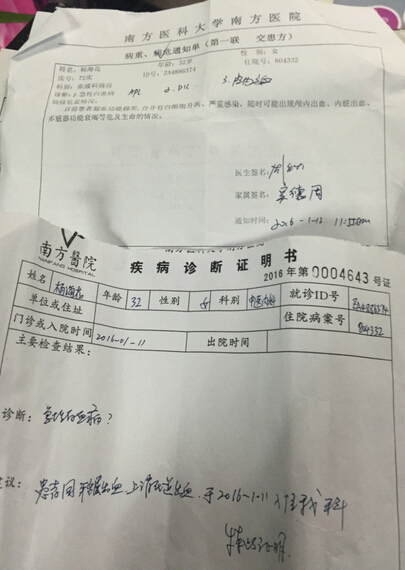 南方医科大学南方医院
病重、病危通知单（第一联 交患方）
姓名：杨海花 年龄：32岁 性别：女
床号：72床 ID号：ZA4886374 住院号：804332
科别：血液科病房
诊断：1.急性白血病 APL 2.DIC 3.
目前患者凝血功能很差，合并有白细胞升高、严重感染，随时可能出现颅内出血、内脏出血、
多脏器功能衰竭等危及生命的情况。
医生签名：
家属签名：
通知时间：2016-1-12 11:55am
南方醫院
NANFANG HOSPITAL
疾病诊断证明书
2016年第0004643号证
姓名 杨海花 年龄 32 性别 女 科别 就诊ID号
单位或住址 住院病案号 804332
门诊或入院时间 2016-01-11 出院时间
主要检查结果：
诊断：急性白血病？
议：患者因 出血 于2016-1-11入住我科
特此证明